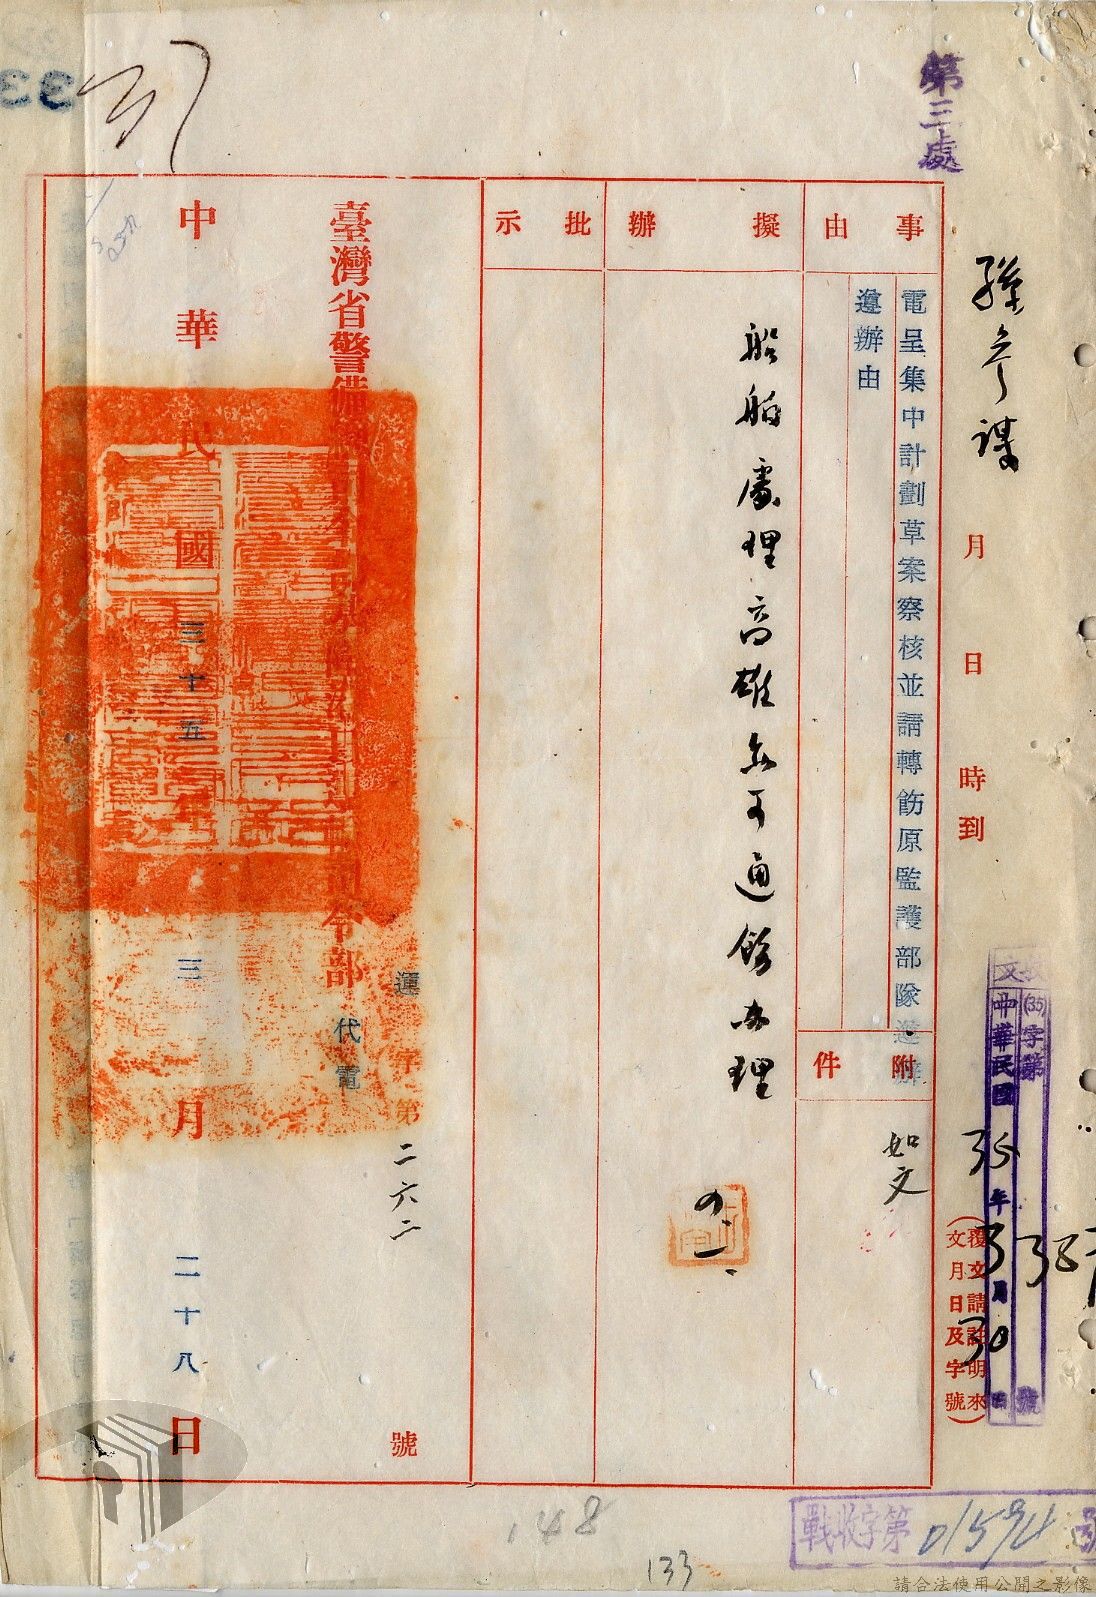 第三處
孫參謀
月 日 時到
收文
(35)字第 357 號
中華民國 35年3月30日
(覆文請註明來
文月日及字號)
事由
電呈集中計劃草案察核並請轉飭原監護部隊遵辦
遵辦由
附件
如文
擬辦
船舶處理高雄亦可通飭辦理
四.一.
批示
臺灣省警備
令部 代電
運字第二六二號
中華民國三十五年三月二十八日
37
33
148
133
戰收字第01594號
請合法使用公開之影像